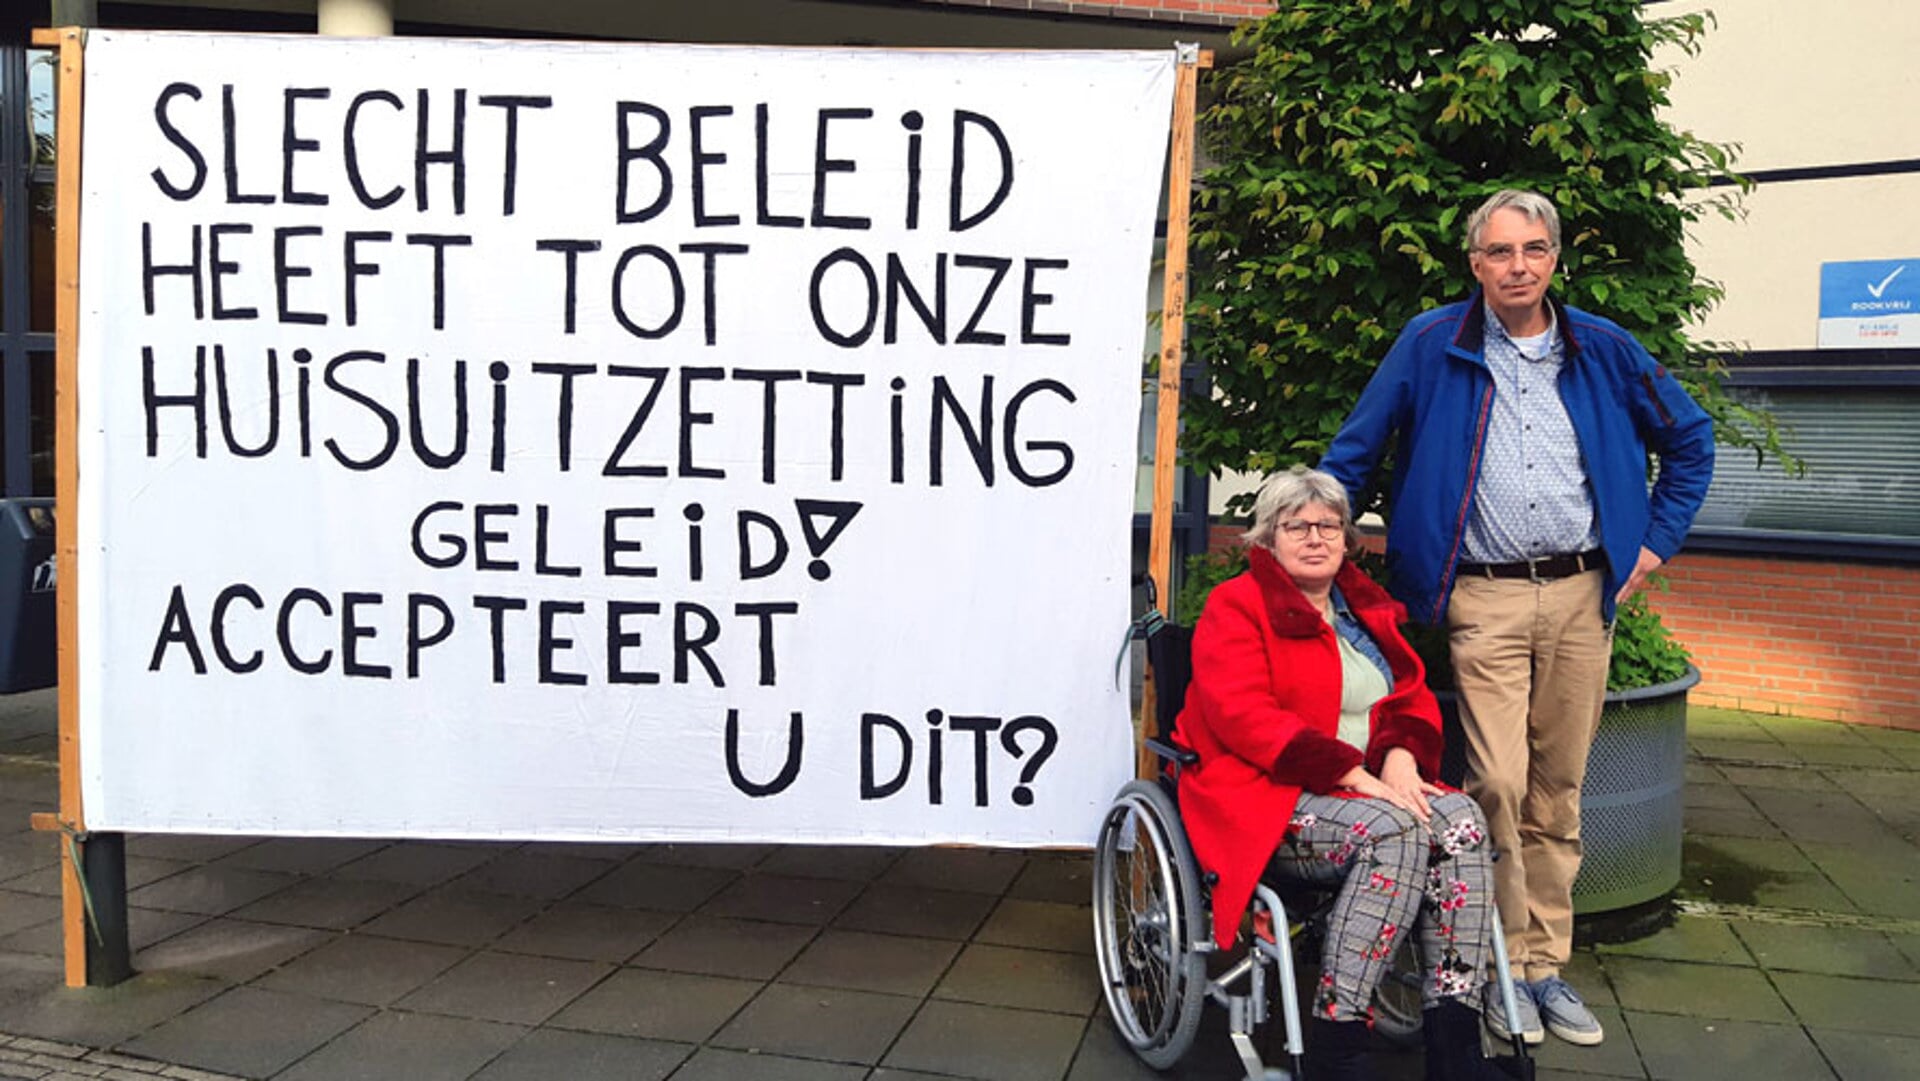 SLECHT BELEID
HEEFT TOT ONZE
HUISUITZETTING
GELEID!
ACCEPTEERT
U DIT?
ROOKVRIJ